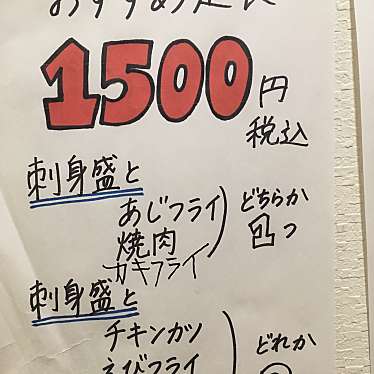 おすすめ定食
1500円
税込
刺身盛と
あじフライ
焼肉
カキフライ
どちらか
1つ
刺身盛と
チキンカツ
えびフライ
どれか